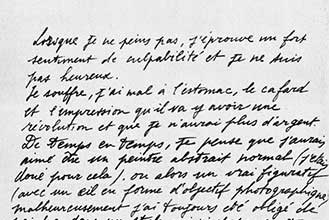 Lorsque je ne peins pas, j'éprouve un fort
sentiment de culpabilité et je ne suis
pas heureux.
Je souffre, j'ai mal à l'estomac, le cafard
et l'impression qu'il va y avoir une
révolution et que je n'aurai plus d'argent.
De Temps en Temps, je pense que j'aurais
aimé être un peintre abstrait normal (j'étais
doué pour cela), ou alors un vrai figuratif
(avec un œil en forme d'objectif photographique
malheureusement j'ai toujours été obligé de